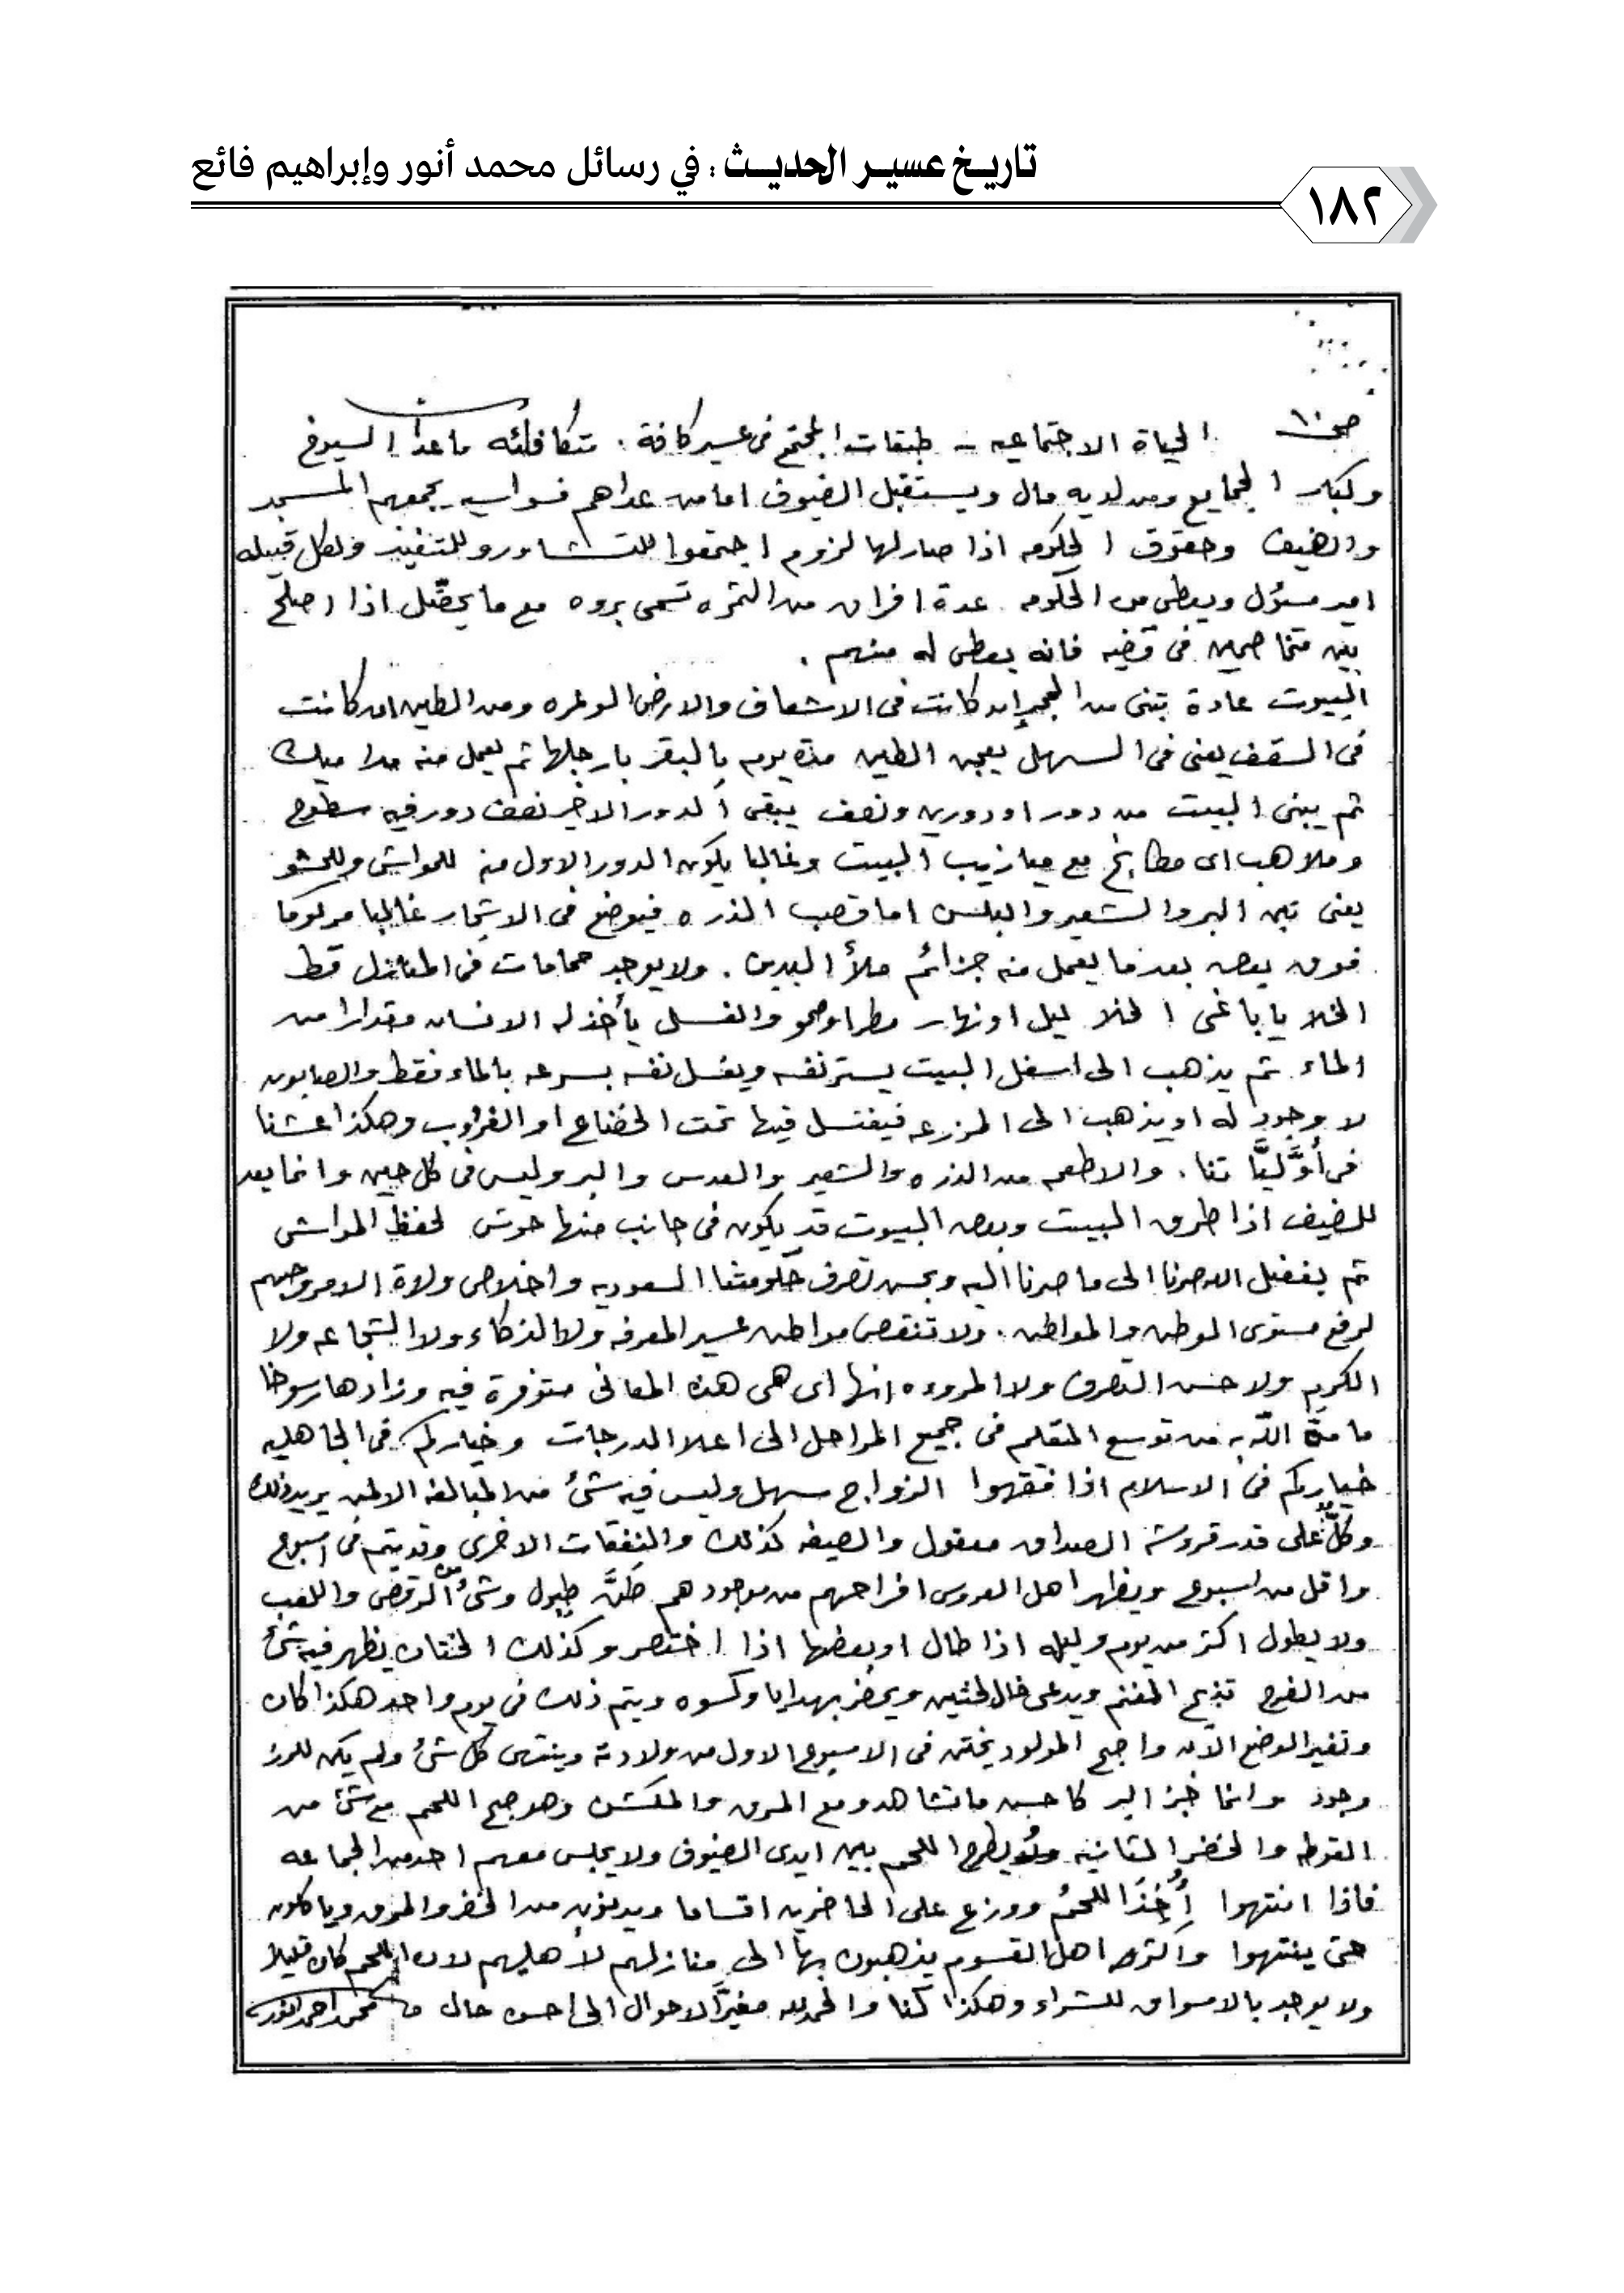 تاريخ عسير الحديث : في رسائل محمد أنور وإبراهيم فائع
١٨٢
صـ١٠ الحياة الاجتماعيه - طبقات المجتمع فى عسير كافة . متكافئه ماعدا الشيوخ
وكبار الجمايع ومن لديه مال ويستقبل الضيوف اما من عداهم فسواسيه يجمعهم المسجد
والضيف وحقوق الحكومه اذا صار لها لزوم اجتمعوا للتشاور وللتنفيذ ولكل قبيله
امير مسؤل ويعطى من الحكومه عدة افراق من الثمره تسمى بروه مع ما يحصّل اذا اصلح
بين متخاصمين فى قضيه فانه يعطى له منهم .
البيوت عادة تبنى من الحجر إن كانت فى الاشعاف والارض الوعره ومن الطين ان كانت
فى السقف يعنى فى السهل يعجن الطين مدة يوم بالبقر بارجلها ثم يعمل منه مداميك
ثم يبنى البيت من دور او دورين ونصف يبقى الدور الاخير نصف دور فيه سطوح
وملاهب اى مطابخ مع ميازيب البيت وغالبا يكون الدور الاول منه للمواشى وللحشو
يعنى تبن البر والشعير والبلس اما قصب الذره فيوضع فى الاشجار غالبا مركوما
فوق بعض بعد ما يعمل منه جزائم ملأ اليدين . ولا يوجد حمامات فى المنازل قط
الخلا يا باغى الخلا ليل او نهار مطر او صحو والغسل يأخذ له الانسان مقدارا من
الماء ثم يذهب الى اسفل البيت يستر نفسه ويغسل نفسه بسرعه بالماء فقط والصابون
لا وجود له او يذهب الى المزرعه فيغتسل فيها تحت او الغروب وهكذا عشنا
فى أوَّليَّا تنا . والاطعمه من الذره والشعير والعدس والبر وليس فى كل حين وانما يعد
للضيف اذا طرق البيت وبعض البيوت قد يكون فى جانب منها حوش لحفظ المواشى
ثم بفضل الله صرنا الى ما صرنا اليه وبحسن تصرف حكومتنا السعوديه واخلاص ولاة الامر وحبهم
لرفع مستوى الوطن والمواطن . ولا تنقص مواطن عسير المعرفه ولا الذكاء ولا الشجاعه ولا
الكرم ولا حسن التصرف ولا المروءه انها اى هى هذه المعانى متوفرة فيه وزادها رسوخا
ما منَّ اللّه به من توسع التعليم فى جميع المراحل الى اعلا الدرجات وخياركم فى الجاهليه
خياركم فى الاسلام اذا فقهوا الزواج سهل وليس فيه شئ من المبالغه الا لمن يريد ذلك
وكلٌّ على قدر قروشه الصداق معقول والصيغه كذلك والنفقات الاخرى وقد يتم فى اسبوع
واقل من اسبوع ويظهر اهل العروس افراحهم من موجودهم طبول وشئ من الرقص واللعب
ولا يطول اكثر من يوم وليله اذا طال او بعضها اذا اختصر وكذلك الختان يظهر فيه شئ
من الفرح تذبح الغنم ويدعى خال الختين ويحضر بهدايا وكسوه ويتم ذلك فى يوم واحد هكذا كان
وتغير الوضع الآن واصبح المولود يختن فى الاسبوع الاول من ولادته وينتهى كل شئ ولم يكن للرز
وجود وانما خبز البر كاحسن ما تشاهد ومع المرق والمكشن وهو صبح اللحم مع شئ من
القوطه والخضر الثانيه ويطرح اللحم بين ايدى الضيوف ولا يجلس معهم احد من الجماعه
فاذا انتهوا أُخِذَ اللحمُ ووزع على الحاضرين اقساما ويدنون من الخضر والمرق وياكلون
حتى ينتهوا واكثر اهل القسوم يذهبون بها الى منازلهم لأهليهم لان اللحم كان قليلا
ولا يوجد بالاسواق للشراء وهكذا كنا والحمد لله مغيرَّ الاحوال الى احسن حال محمد احمد انور